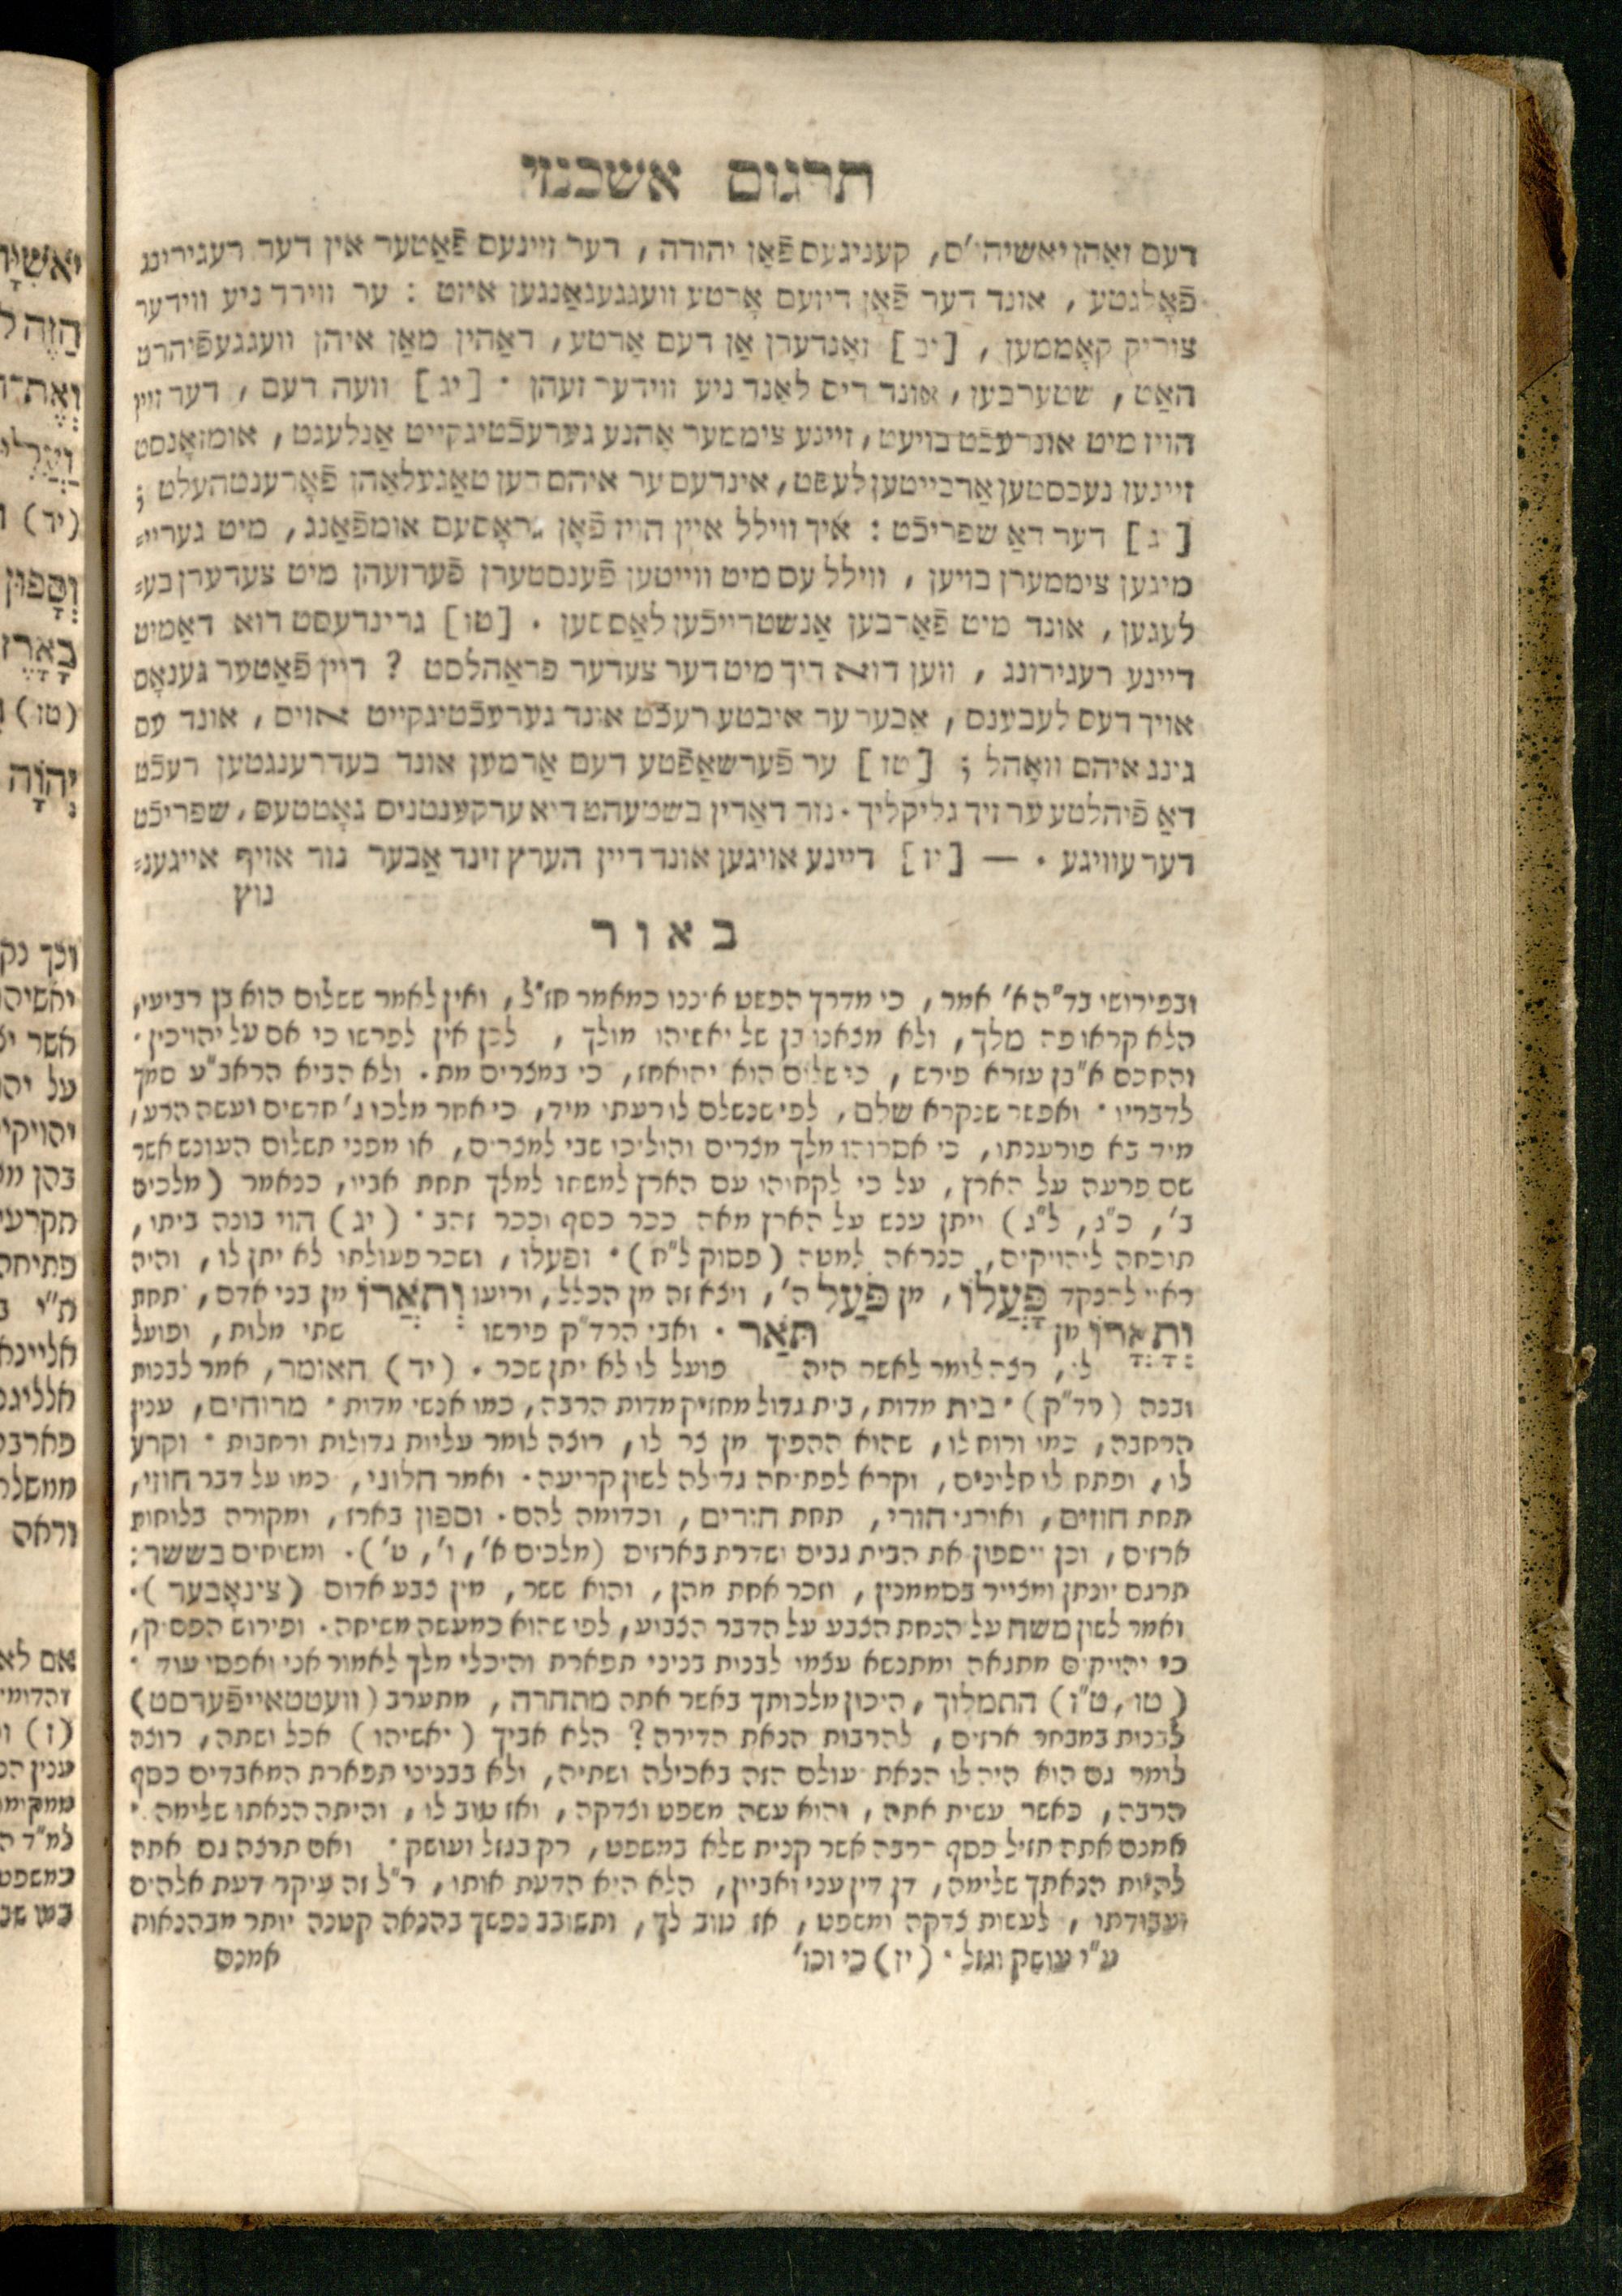 תרגום אשכנזי
דעם זאָהן יאשיהו׳ס, קעניגעס פֿאָן יהודה, דער זיינעם פֿאַטער אין דער רעגירינג
פֿאָלגטע, אונד דער פֿאָן דיזעם אָרטע וועגגעגאַנגען איזט : ער ווירד ניע ווידער
צוריק קאָממען, [יב] זאָנדערן אַן דעם אָרטע, דאַהין מאַן איהן וועגגעפֿיהרט
האַט, שטערבען, אונד דיס לאַנד ניע ווידער זעהן · [יג] וועה דעם, דער זיין
הויז מיט אונרעכֿט בויעט, זיינע צימער אָהנע גערעכֿטיגקייט אַנלעגט, אומזאָנסט
זיינען נעכסטען אַרבייטען לעסט, אינדעם ער איהם דען טאַגעלאָהן פֿאָרענטהעלט ;
[יג] דער דאַ שפריכֿט : איך ווילל איין הויז פֿאָן גראָסעם אומפֿאַנג, מיט געריי=
מיגען צימערן בויען, ווילל עס מיט ווייטען פֿענסטערן פֿערזעהן מיט צעדערן בע=
לעגען, אונד מיט פֿאַרבען אַנשטרייכֿען לאַססען · [טו] גרינדעסט דוא דאַמיט
דיינע רעגירונג, ווען דוא דיך מיט דער צעדער פראַהלסט ? דיין פֿאַטער גענאָס
אויך דעס לעבענס, אַבער ער איבטע רעכֿט אונד גערעכֿטיגקייט אויס, אונד עס
גינג איהם וואָהל ; [טז] ער פֿערשאַפֿטע דעם אַרמען אונד בעדרענגטען רעכֿט
דאַ פֿיהלטע ער זיך גליקליך · נור דאַרין בשטעהט דיא ערקענטניס גאָטטעס, שפריכֿט
דער עוויגע · — [יז] דיינע אויגען אונד דיין הערץ זינד אַבער נור אויף אייגענ=
נוץ
באור
ובפירושי בד״ה א׳ אמר, כי מדרך הפשט איננו כמאמר חז״ל, ואין לאמר ששלום הוא בן רביעי,
הלא קראו פה מלך, ולא מצאנו בן של יאשיהו מולך, לכן אין לפרשו כי אם על יהויכין ·
והחכם א״בן עזרא פירש, כי שלום הוא יהואחז, כי במצרים מת · ולא הביא הראב״ע סמך
לדבריו · ואפשר שנקרא שלם, לפי שנשלם לו רעתו מיד, כי אחר מלכו ג׳ חדשים ועשה הרע,
מיד בא פורענתו, כי אסרוהו מלך מצרים והוליכו שבי למצרים, או מפני תשלום העונש אשר
שם פרעה על הארץ, על כי לקחוהו עם הארץ למשחו למלך תחת אביו, כנאמר (מלכים
ב׳, כ״ג, ל״ג) ויתן ענש על הארץ מאה ככר כסף וככר זהב · (יג) הוי בונה ביתו,
תוכחה ליהויקים, כנראה למטה (פסוק ל״ח) · ופעלו, ושכר פעולתו לא יתן לו, והיה
ראוי להנקד פָּעֳלוֹ, מן פֹּעַל ה׳, ויצא זה מן הכלל, וריעו וְתֹאֲרוֹ מן בני אדם, תחת
וְתָאֳרוֹ מן תֹּאַר · ואבי הרד״ק פירשו שתי מלות, ופועל
לו, רצה לומר לאשר היה פועל לו לא יתן שכר · (יד) האומר, אמר לבנות
ובנה (רד״ק) · בית מדות, בית גדול מחזיק מדות הרבה, כמו אנשי מדות · מרוחים, ענין
הרחבה, כמו ורוח לו, שהוא ההפיך מן צר לו, רוצה לומר עליות גדולות ורחבות · וקרע
לו, ופתח לו חלונים, וקרא לפתיחה גדולה לשון קריעה · ואמר חלוני, כמו על דבר חוזי,
תחת חוזים, ואורגי חורי, תחת חורים, וכדומה להם · וספון בארז, ומקורה בלוחות
ארזים, וכן ויספון את הבית גבים ושדרת בארזים (מלכים א׳, ו׳, ט׳) · ומשוחים בששר :
תרגם יונתן ומצוייר בסממנין, וזכר אחת מהן, והוא ששר, מין צבע אדום (צינאָבער) ·
ואמר לשון משח על הנחת הצבע על הדבר הצבוע, לפי שהוא כמעשה משיחה · ופירוש הפסוק,
כי יהויקים מתגאה ומתנשא עצמו לבנית בניני תפארת והיכלי מלך לאמור אני ואפסי עוד ·
(טו, ט״ז) התמלוך, היכון מלכותך באשר אתה מתחרה, מתערב (וועטטאייפֿערסט)
לבנות במבחר ארזים, להרבות הנאת הדירה ? הלא אביך (יאשיהו) אכל ושתה, רוצה
לומר גם הוא היה לו הנאת עולם הזה באכילה ושתיה, ולא בבניני תפארת המאבדים כסף
הרבה, כאשר עשית אתה, והוא עשה משפט וצדקה, ואז טוב לו, והיתה הנאתו שלימה ·
אמנם אתה תזיל כסף הרבה אשר קנית שלא במשפט, רק בגזל ועושק · ואם תרצה גם אתה
להיות הנאתך שלימה, דן דין עני ואביון, הלא היא הדעת אותו, ר״ל זה עיקר דעת אלהים
ועבודתו, לעשות צדקה ומשפט, אז טוב לך, ותשובב נפשך בהנאה קטנה יותר מבהנאות
ע״י עושק וגזל · (יז) כי וכו׳
אמנם